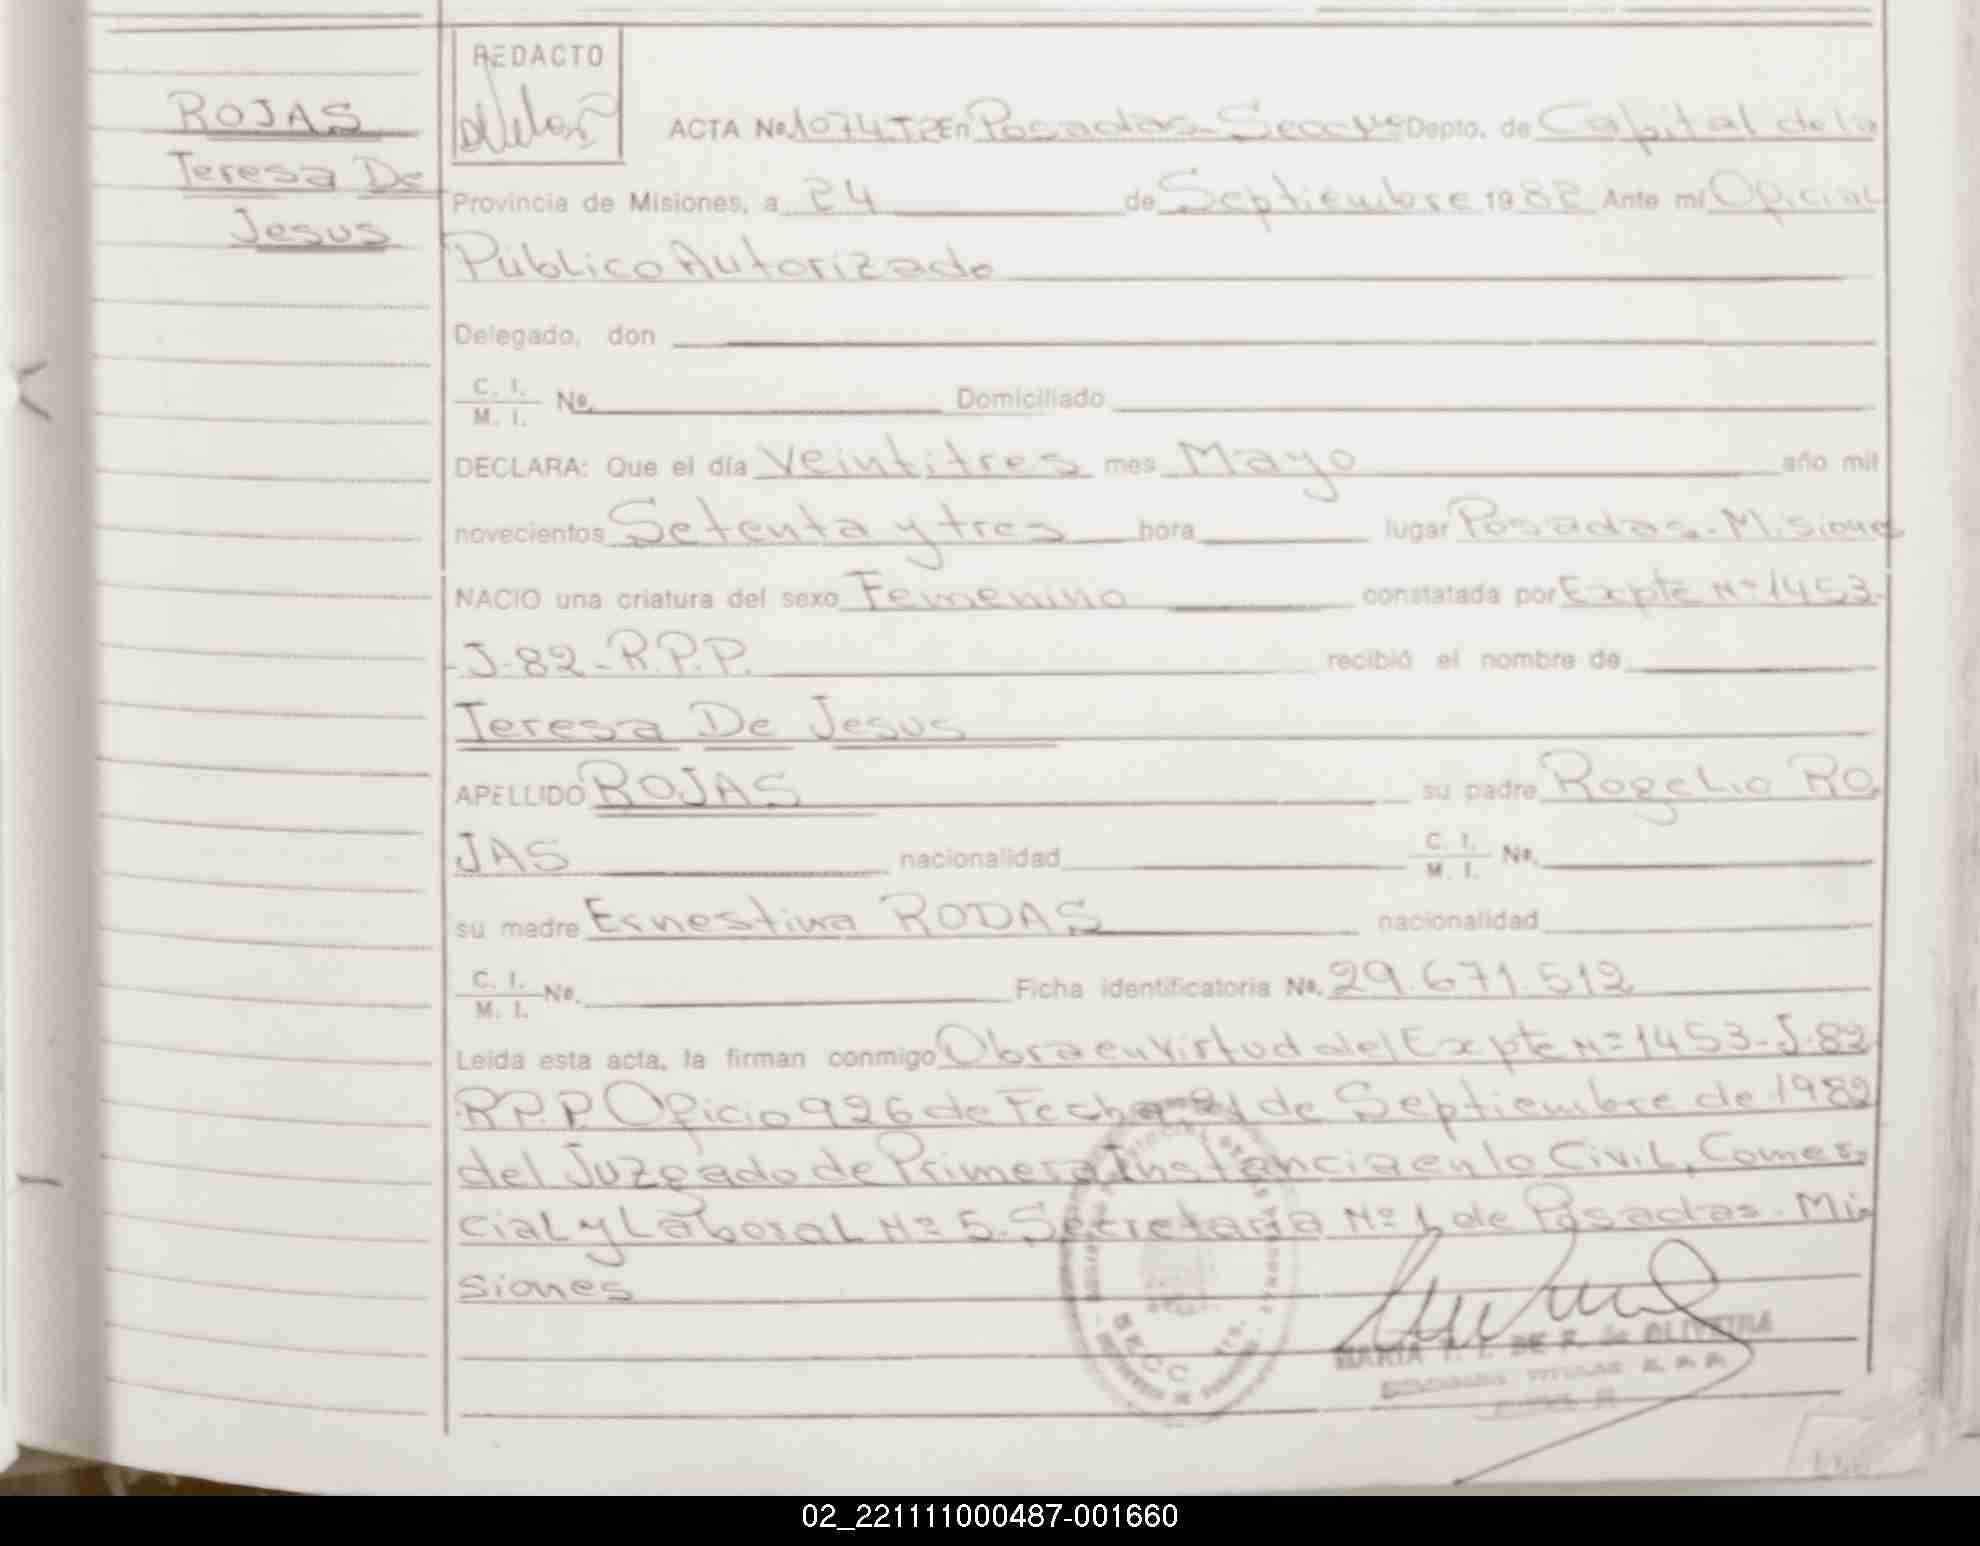 REDACTO
ROJAS
Teresa De
Jesus
ACTA No. 1074 T2 En Posadas - Secc Depto. de Capital de la
Provincia de Misiones, a 24 de Septiembre 1982 Ante mí Oficial
Público Autorizado
Delegado, don
C. I. / M. I. No. Domiciliado
DECLARA: Que el día Veintitres mes Mayo año mil
novecientos Setenta y tres hora lugar Posadas - Misiones
NACIO una criatura del sexo Femenino constatada por Expte Nº 1453-
-J-82-R.P.P. recibió el nombre de
Teresa De Jesus
APELLIDO ROJAS su padre Rogelio RO
JAS nacionalidad C. I. / M. I. No.
su madre Ernestina RODAS nacionalidad
C. I. / M. I. No. Ficha identificatoria No. 29.671.512
Leída esta acta, la firman conmigo Obra en virtud del Expte Nº 1453-J-82
R.P.P. Oficio 926 de Fecha 21 de Septiembre de 1982
del Juzgado de Primera Instancia en lo Civil, Comer-
cial y Laboral Nº 5. Secretaria Nº 1 de Posadas. Mi-
siones
MARIA T. I. DE F. de OLIVEIRA
02_221111000487-001660